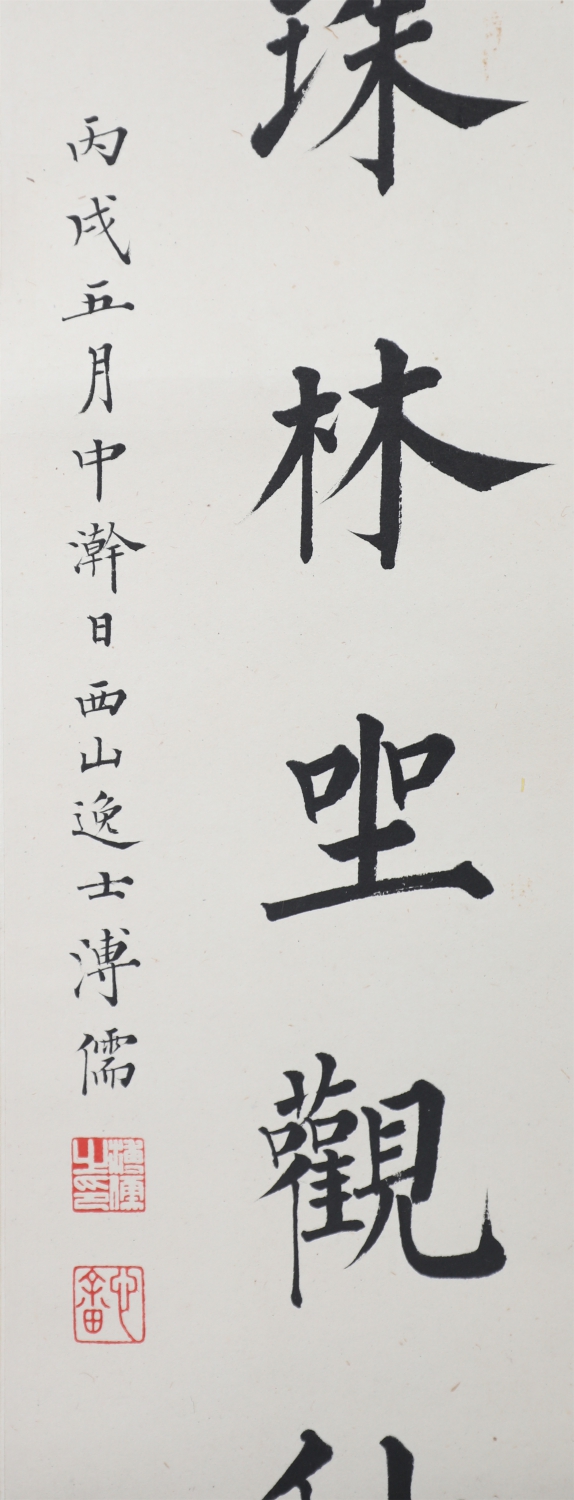 珠林坐觀
丙戌五月中澣日西山逸士溥儒
溥儒之印
心畬